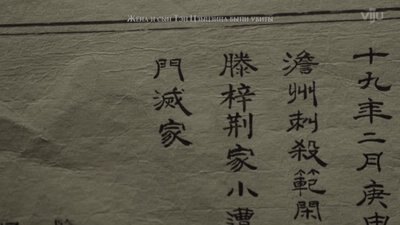 Жена и сын Тэн Цзыцзина были убиты
viju
十九年二月庚申
澹州刺殺範閑
滕梓荊家小遭
門滅家